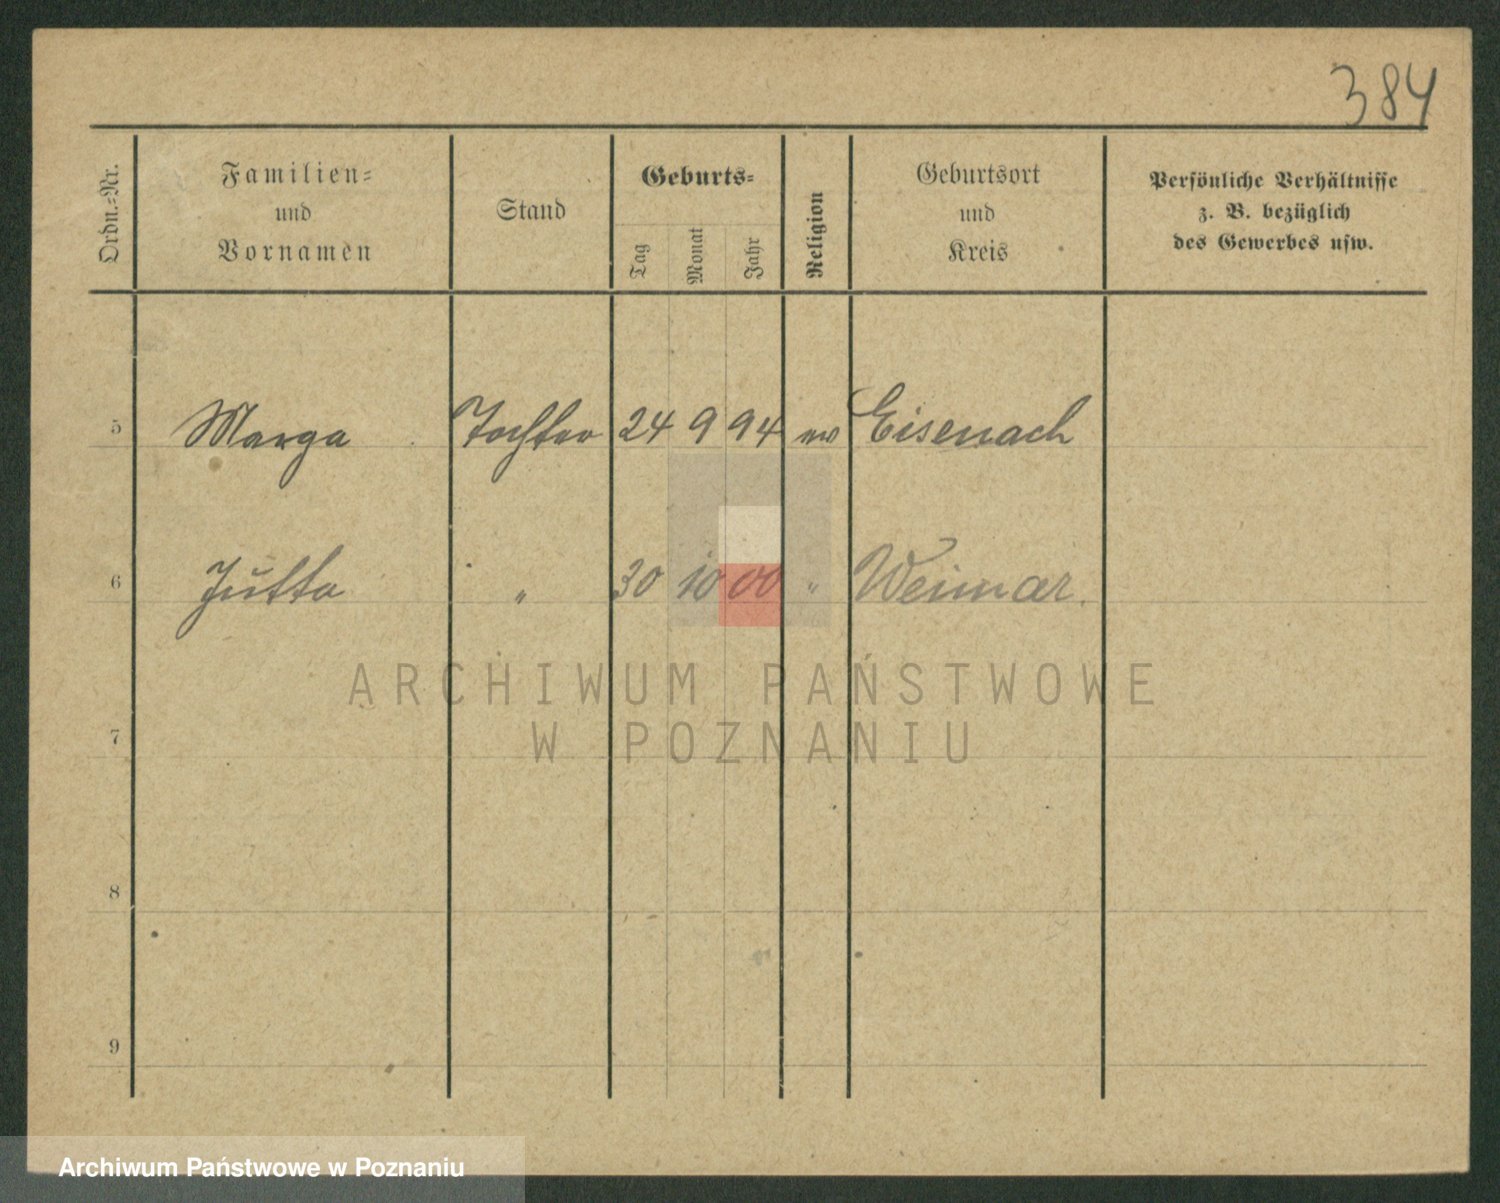 384
Ordn.=Nr.
Familien=
und
Vornamen
Stand
Geburts=
Tag
Monat
Jahr
Religion
Geburtsort
und
Kreis
Persönliche Verhältnisse
z. B. bezüglich
des Gewerbes usw.
5 Marga Tochter 24 9 94 ev Eisenach
6 Jutta " 30 10 00 " Weimar.
ARCHIWUM PAŃSTWOWE
W POZNANIU
7
8
9
Archiwum Państwowe w Poznaniu